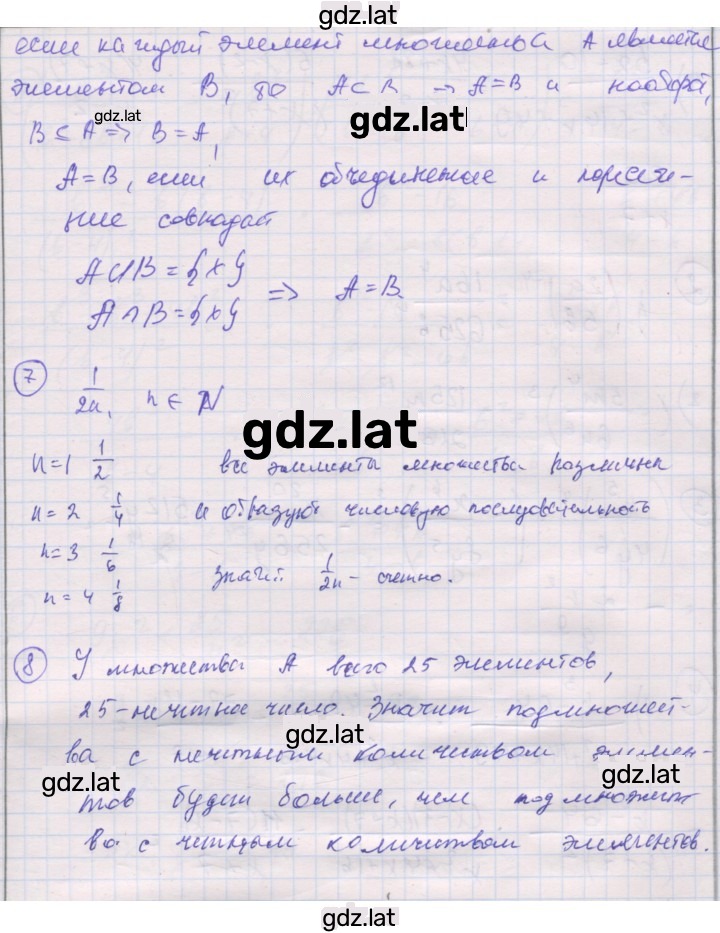 gdz.lat
если каждый элемент множества A является
элементом B, то A⊂B → A=B и наоборот,
gdz.lat
gdz.lat
B⊆A ⇒ B=A,
A=B, если их объединение и пересече-
ние совпадает
A∪B={x}
⇒ A=B
A∩B={x}
7 1/2n, n∈N
gdz.lat
n=1 1/2 все элементы множества различны
n=2 1/4 и образуют числовую последовательность
n=3 1/6
значит 1/2n - счетно.
n=4 1/8
8 У множества A всего 25 элементов,
25-нечетное число. Значит подмножест-
gdz.lat
ва с нечетным количеством элемен-
gdz.lat
gdz.lat
тов будет больше, чем подмножест
ва с четным количеством элементов.
gdz.lat